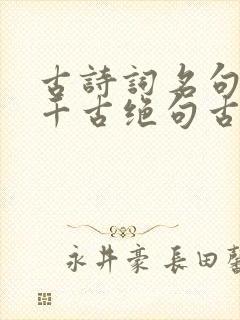 古詩詞名句
千古绝句古
永井豪 長田